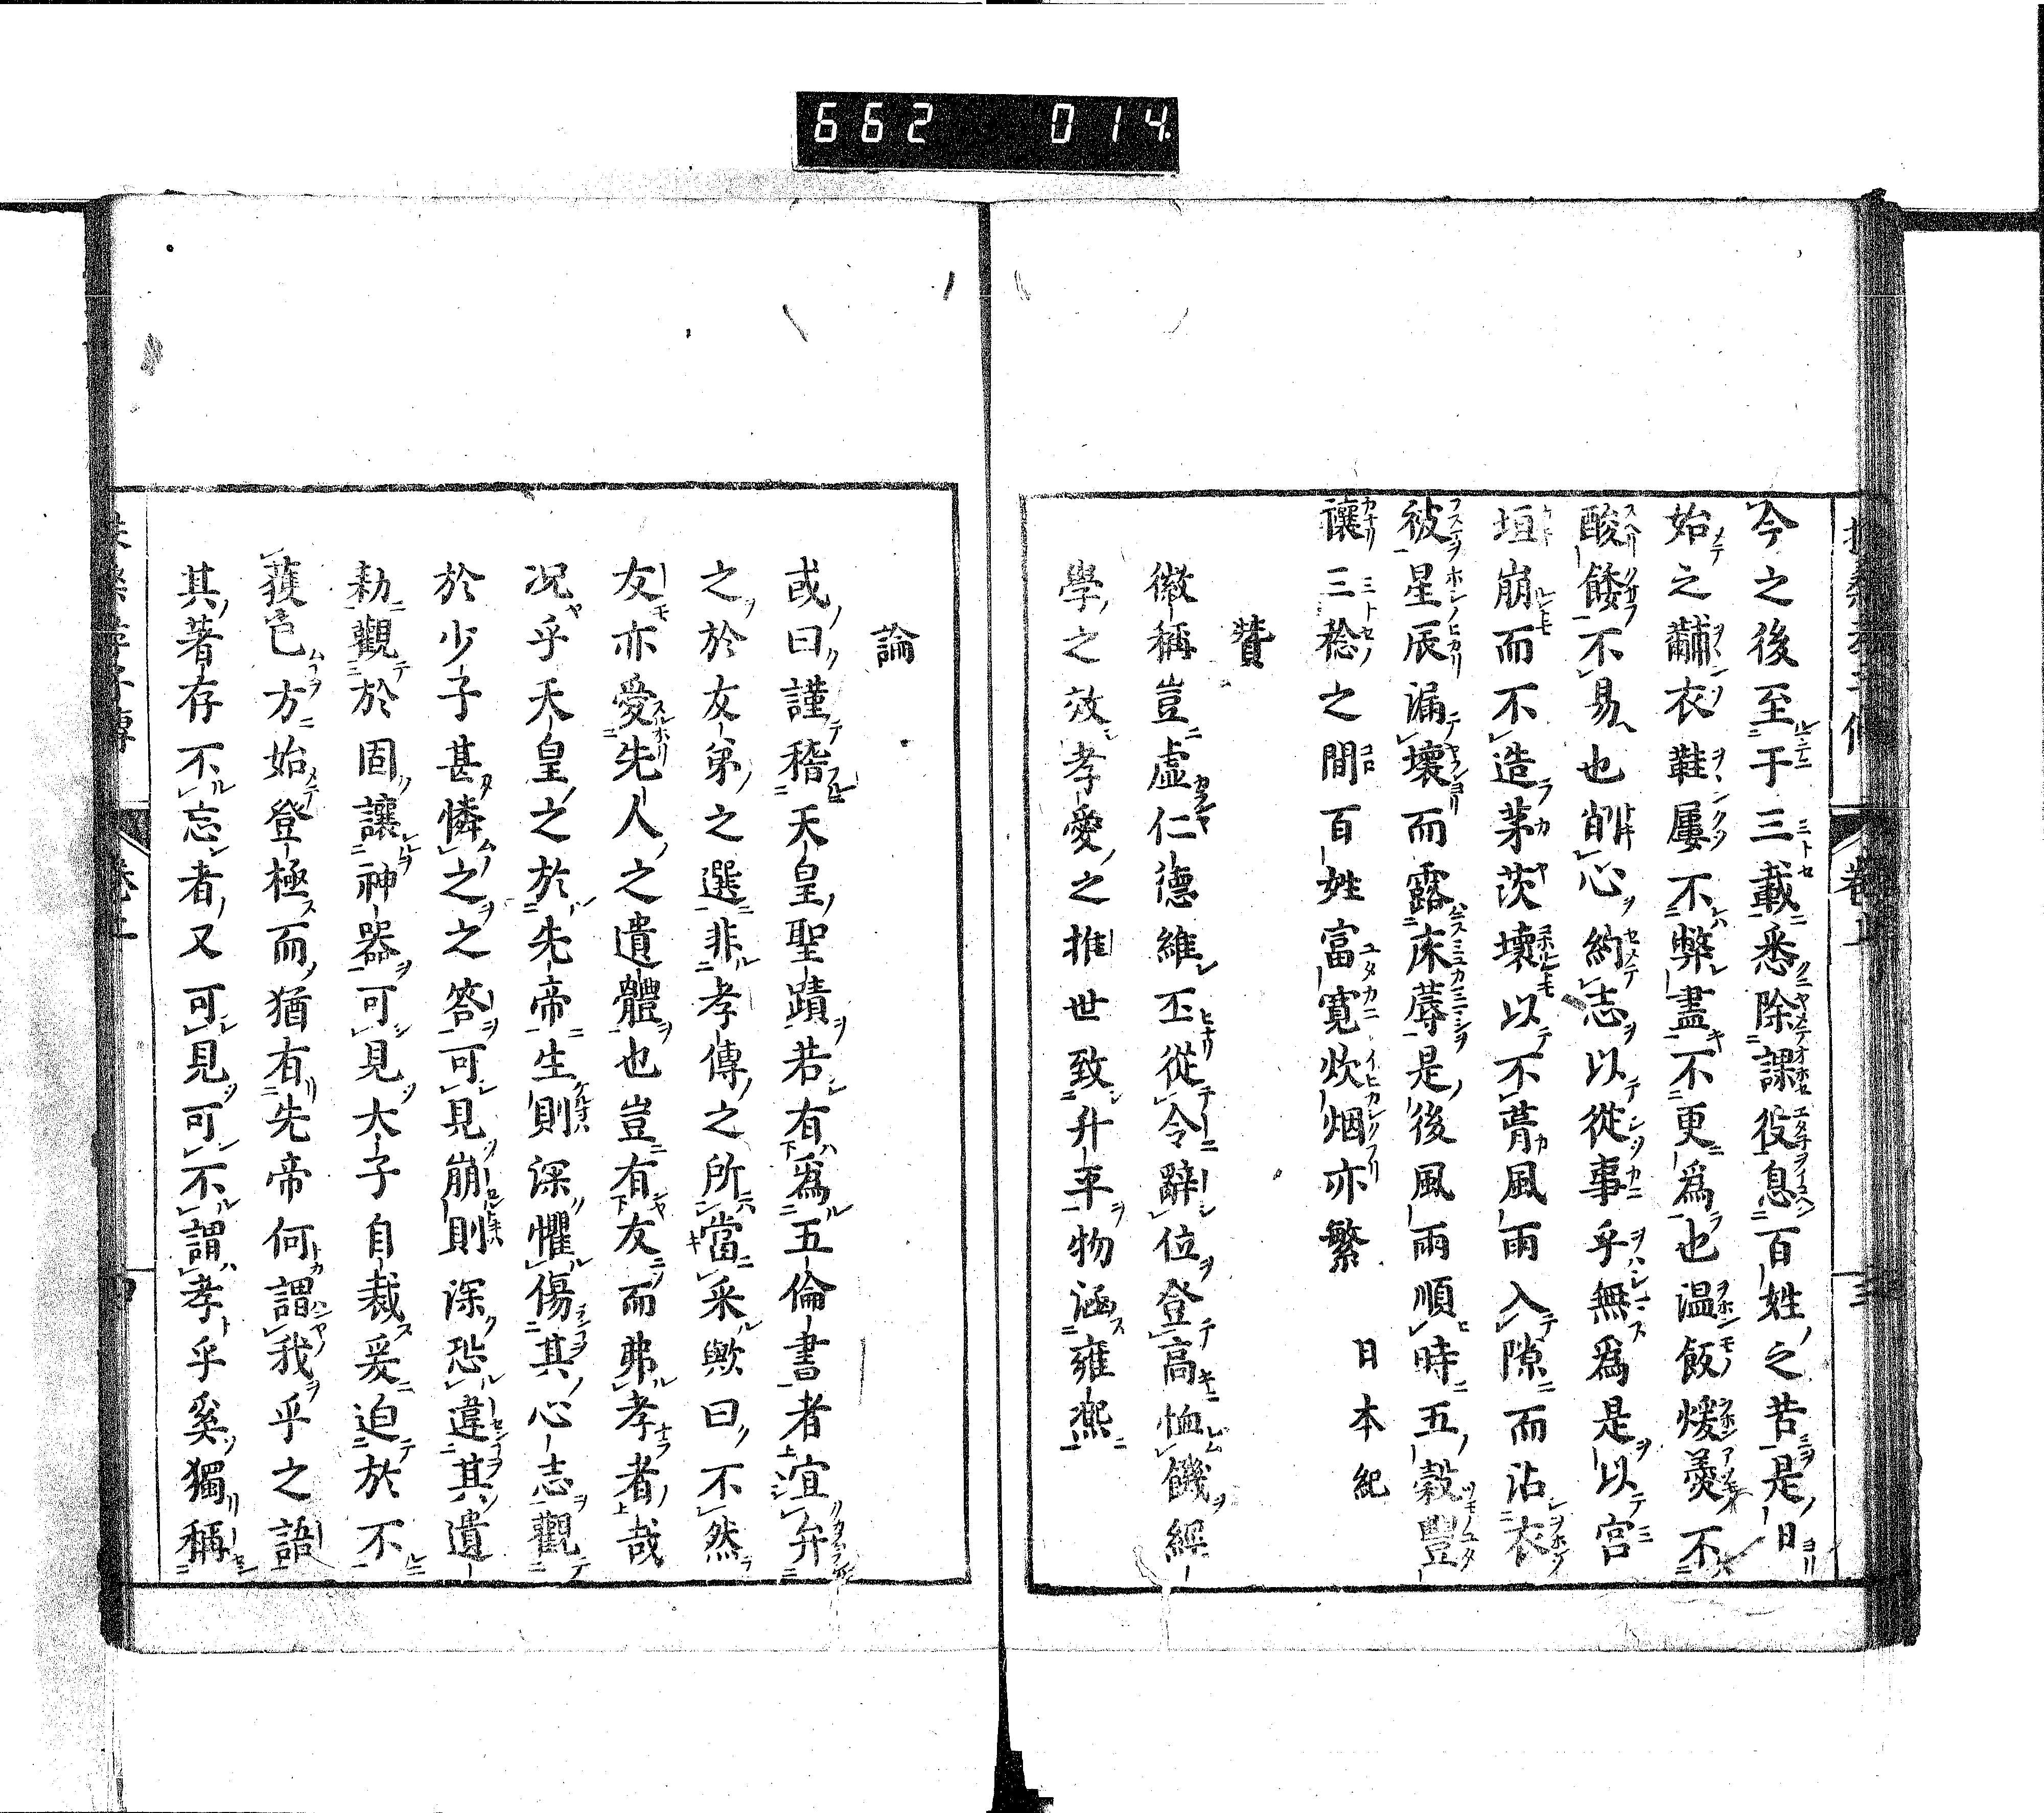 662 014
今之後至于三載悉除課役息百姓之苦是日
始之黼衣鞋屨不弊盡不更爲也温飯煖羮不
酸餧不易也削心約志以從事乎無爲是以宮
垣崩而不造茅茨壞以不葺風雨入隙而沾衣
被星辰漏壞而露床蓐是後風雨順時五穀豐
穰三稔之間百姓富寛炊烟亦繁 日本紀
賛
徽稱豈虚仁德維丕從令辭位登高恤饑經
學之效孝愛之推世致升平物涵雍熙
論
或曰謹稽天皇聖蹟若有爲五倫書者宜弁
之於友弟之選非孝傳之所當采歟曰不然
友亦愛先人之遺體也豈有友而弗孝者哉
况乎天皇之於先帝生則深懼傷其心志觀
於少子甚憐之之答可見崩則深恐違其遺
勅觀於固讓神器可見大子自裁爰迫於不
獲已方始登極而猶有先帝何謂我乎之語
其著存不忘者又可見可不謂孝乎奚獨稱